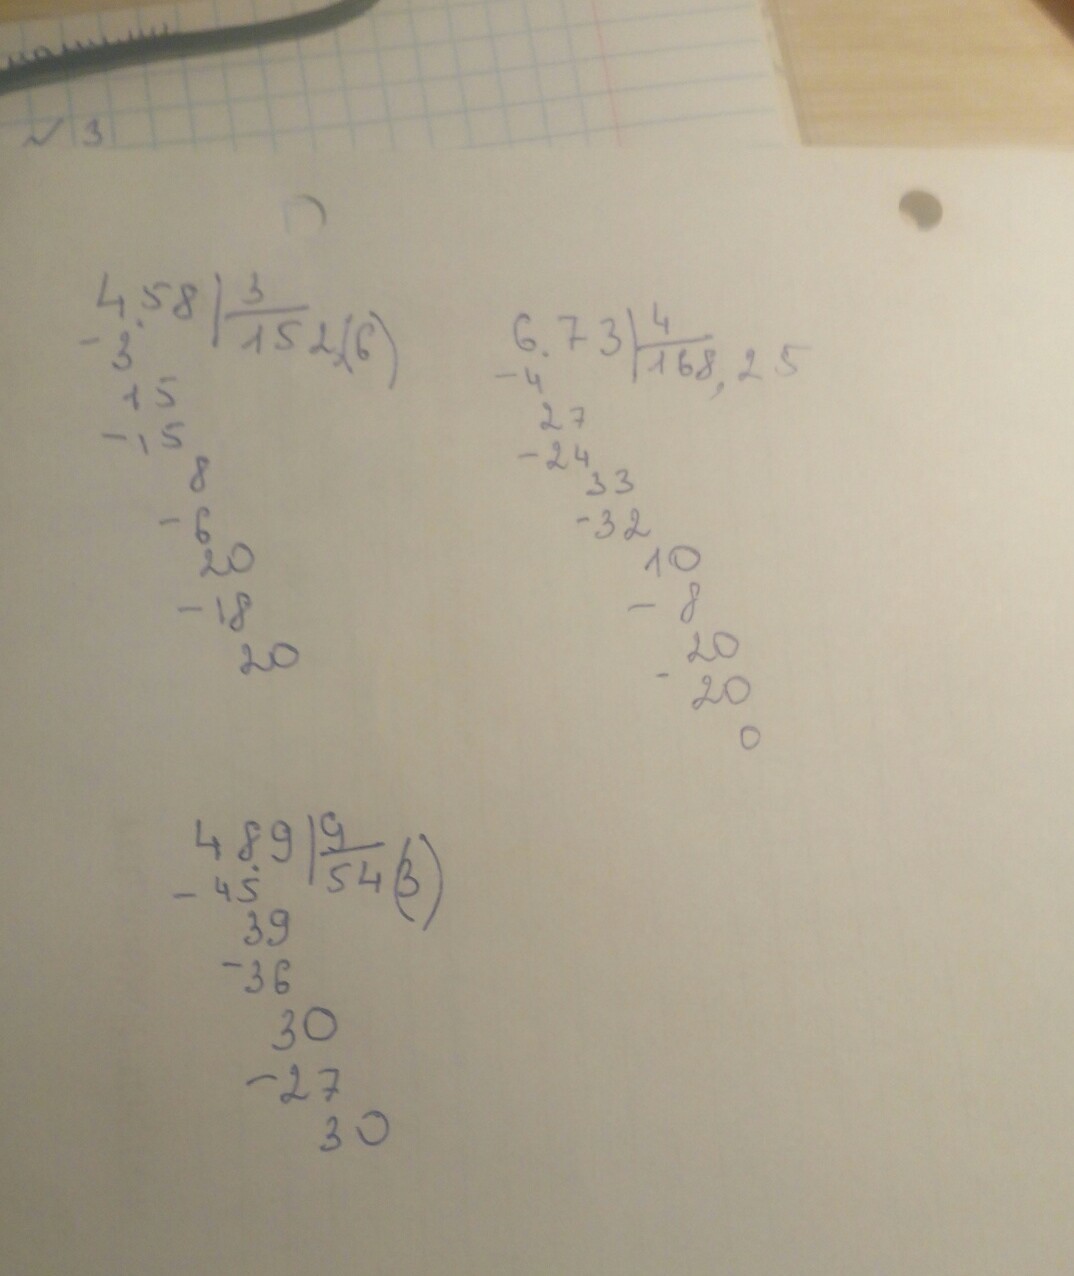 № 3
4.58 | 3
152,(6)
- 3
15
- 15
8
- 6
20
- 18
20
6.73 | 4
168,25
- 4
27
- 24
33
- 32
10
- 8
20
- 20
0
489 | 9
54(3)
- 45
39
- 36
30
- 27
30